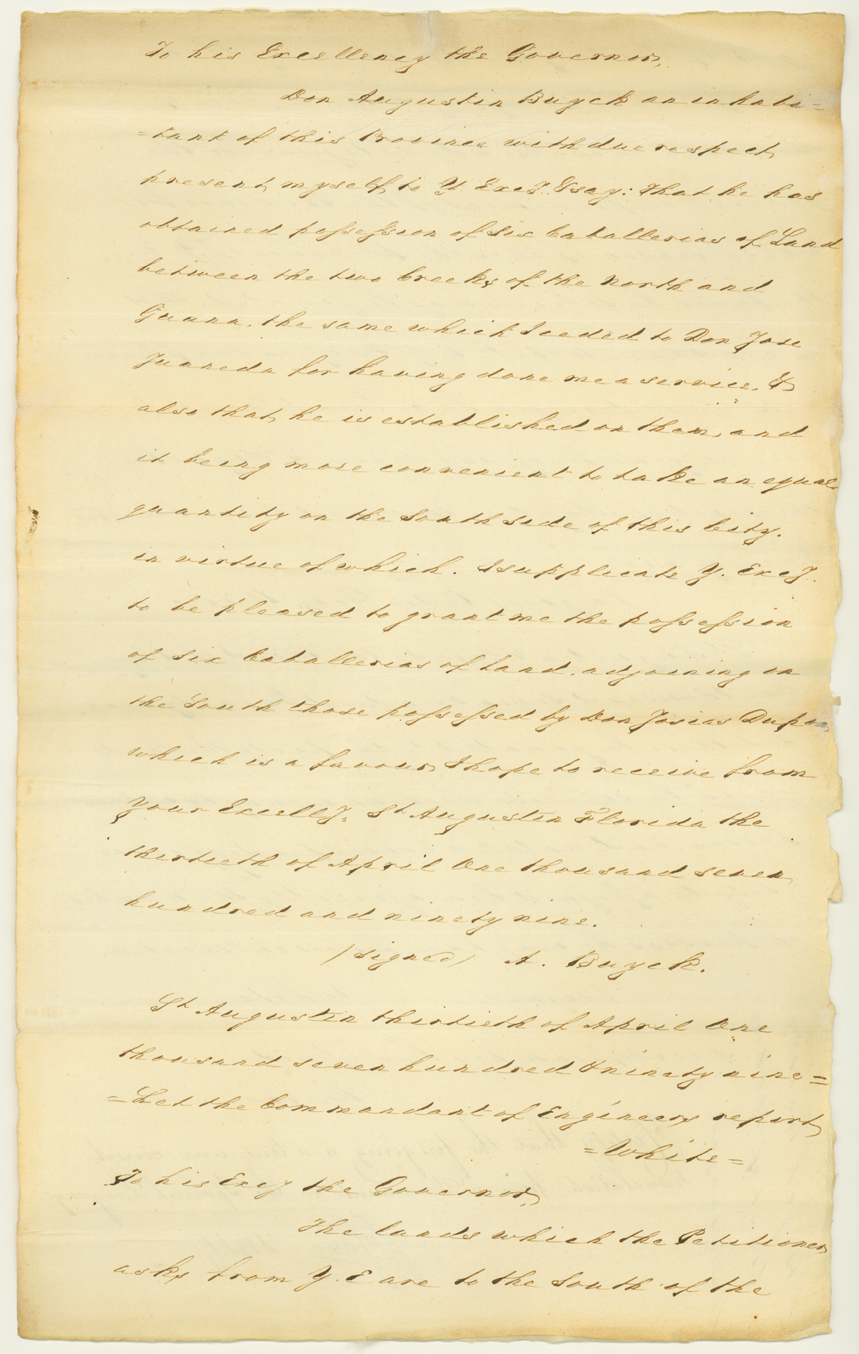 To his Excellency the Governor,
Don Augustin Buyck an inhabi=
=tant of this Province with due respect
present myself to Y Excy. & say: that he has
obtained possession of six Caballerias of Land
between the two Creeks of the North and
Guana, the same which I ceeded to Don Jose
for having done me a service, &
also that he is established on them, and
it being more convenient to take an equal
quantity on the South side of this City.
in virtue of which. I supplicate Y. Excy.
to be pleased to grant me the possession
of six Caballerias of land, adjoining on
the South those possessed by Don Josias Dupon
which is a favour, I hope to receive from
Your Excelly. St Augustin Florida the
thirtieth of April One thousand seven
hundred and ninety nine.
(signed) A. Buyck.
St Augustin thirtieth of April One
thousand seven hundred & ninety nine=
=Let the Commandant of Engineers report,
=White=
To his Excy the Governor,
The lands which the Petitioner
asks from Y. E are to the South of the